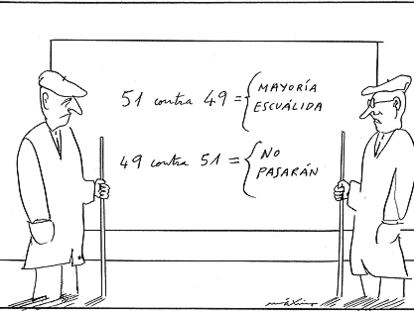 51 contra 49 = { MAYORÍA
ESCUÁLIDA
49 contra 51 = { NO
PASARÁN
máximo